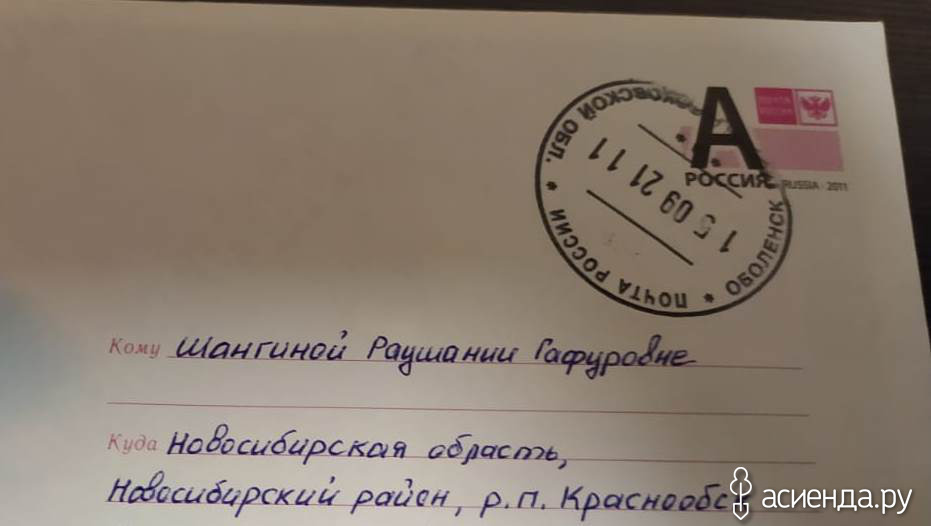 А
РОССИЯ
RUSSIA · 2011
МОСКОВСКОЙ ОБЛ. * ПОЧТА РОССИИ * ОБОЛЕНСК
15 09 21 11
Кому Шангиной Раушании Гафуровне
Куда Новосибирская область,
Новосибирский район, р.п. Краснообск
асиенда.ру